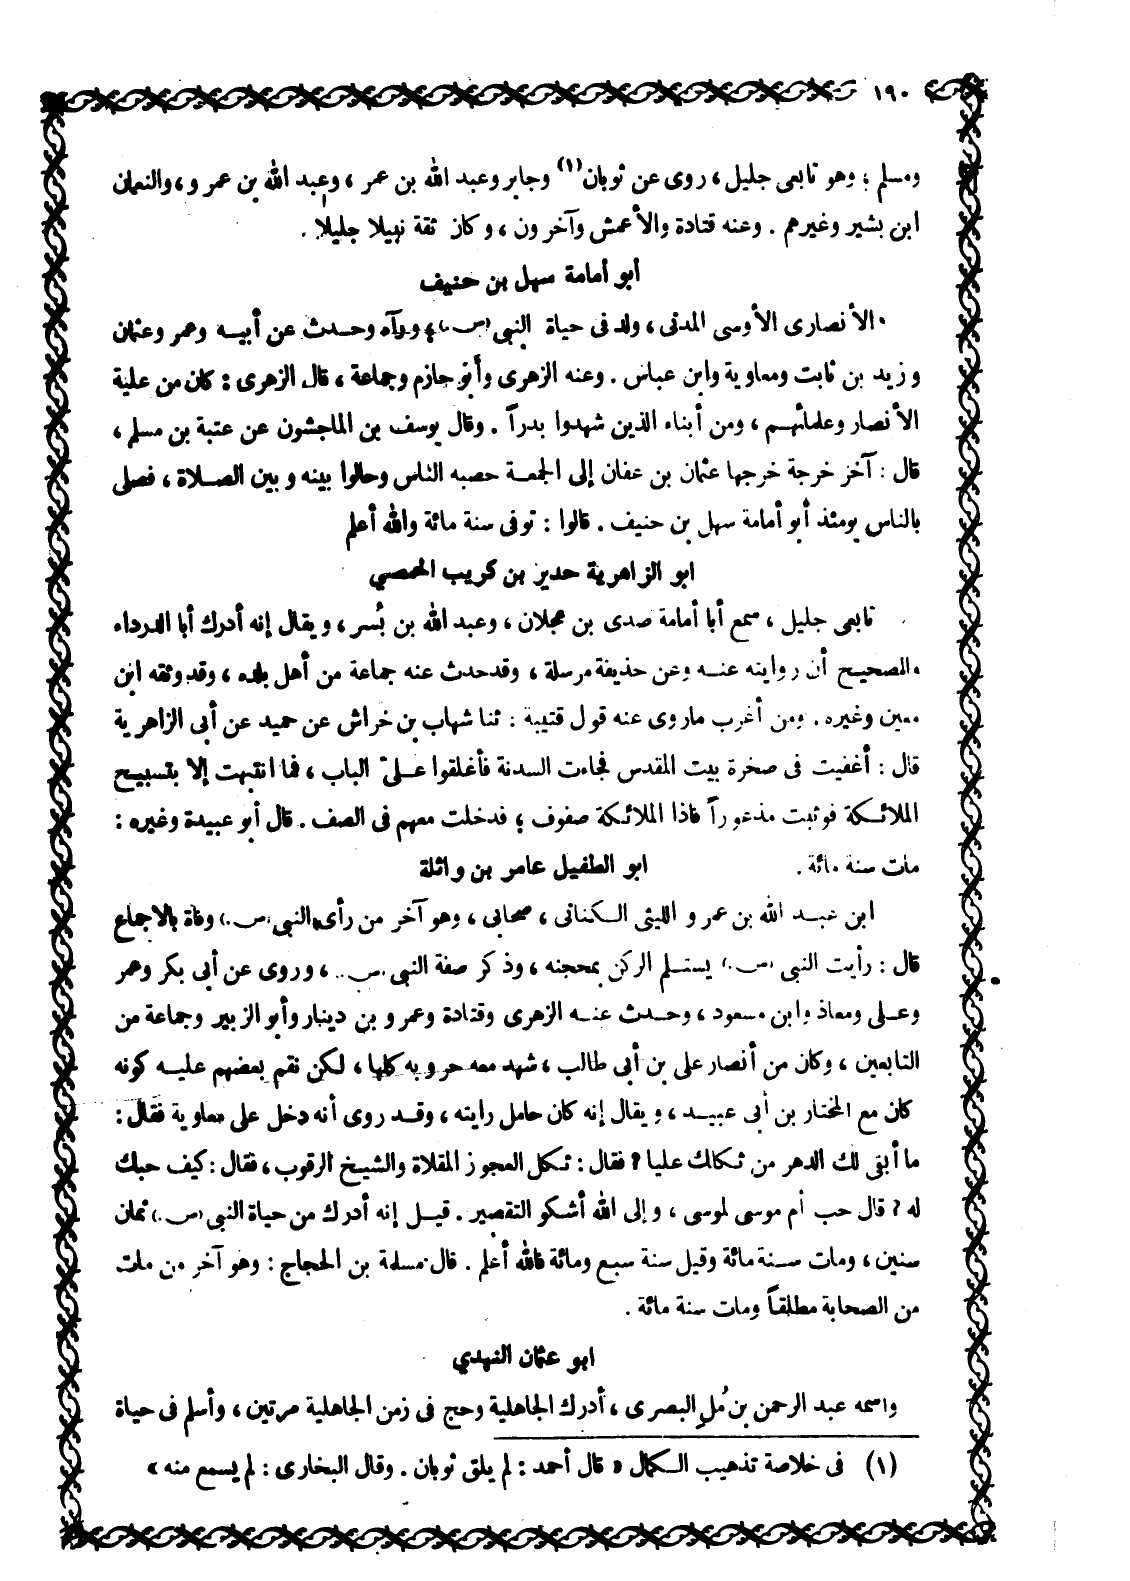 ١٩٠
ومسلم ؛ وهو تابعى جليل ، روى عن ثوبان(١) وجابر وعبد الله بن عمر ، وعبد الله بن عمرو ، والنعمان
ابن بشير وغيرهم . وعنه قتادة والأعمش وآخرون ، وكان ثقة نبيلا جليلا .
أبو أمامة سهل بن حنيف
الأنصارى الأوسى المدنى ، ولد فى حياة النبى (ص.) ، ورآه وحدث عن أبيه وعمر وعثمان
وزيد بن ثابت ومعاوية وابن عباس . وعنه الزهرى وأبو حازم وجماعة ، قال الزهرى : كان من علية
الأنصار وعلمائهم ، ومن أبناء الذين شهدوا بدراً . وقال يوسف بن الماجشون عن عتبة بن مسلم ،
قال : آخر خرجة خرجها عثمان بن عفان إلى الجمعة حصبه الناس وحالوا بينه وبين الصلاة ، فصلى
بالناس يومئذ أبو أمامة سهل بن حنيف . قالوا : توفى سنة مائة والله أعلم
ابو الزاهرية حدير بن كريب الحمصي
تابعى جليل ، سمع أبا أمامة صدى بن عجلان ، وعبد الله بن بُسر ، ويقال إنه أدرك أبا الدرداء
والصحيح أن روايته عنه وعن حذيفة مرسلة ، وقد حدث عنه جماعة من أهل بلده ، وقد وثقه ابن
معين وغيره . ومن أغرب ما روى عنه قول قتيبة : ثنا شهاب بن خراش عن حميد عن أبى الزاهرية
قال : أغفيت فى صخرة بيت المقدس فجاءت السدنة فأغلقوا علىّ الباب ، فما انتبهت إلا بتسبيح
الملائكة فوثبت مذعوراً فاذا الملائكة صفوف ؛ فدخلت معهم فى الصف . قال أبو عبيدة وغيره :
مات سنة مائة .
ابو الطفيل عامر بن واثلة
ابن عبد الله بن عمرو الليثى الكنانى ، صحابى ، وهو آخر من رأى النبى (ص.) وفاة بالاجماع
قال : رأيت النبى (ص.) يستلم الركن بمحجنه ، وذكر صفة النبى (ص.) ، وروى عن أبى بكر وعمر
وعلى ومعاذ وابن مسعود ، وحدث عنه الزهرى وقتادة وعمرو بن دينار وأبو الزبير وجماعة من
التابعين ، وكان من أنصار على بن أبى طالب ، شهد معه حروبه كلها ، لكن نقم بعضهم عليه كونه
كان مع المختار بن أبى عبيد ، ويقال إنه كان حامل رايته ، وقد روى أنه دخل على معاوية فقال :
ما أبقى لك الدهر من ثكالك عليا ? فقال : ثكل العجوز المقلاة والشيخ الرقوب ، فقال : كيف حبك
له ? قال حب أم موسى لموسى ، وإلى الله أشكو التقصير . قيل إنه أدرك من حياة النبى (ص.) ثمان
سنين ، ومات سنة مائة وقيل سنة سبع ومائة فالله أعلم . قال مسلمة بن الحجاج : وهو آخر من مات
من الصحابة مطلقاً ومات سنة مائة .
ابو عثمان النهدي
واسمه عبد الرحمن بن مُل البصرى ، أدرك الجاهلية وحج فى زمن الجاهلية مرتين ، وأسلم فى حياة
(١) فى خلاصة تذهيب الكمال « قال أحمد : لم يلق ثوبان . وقال البخارى : لم يسمع منه »